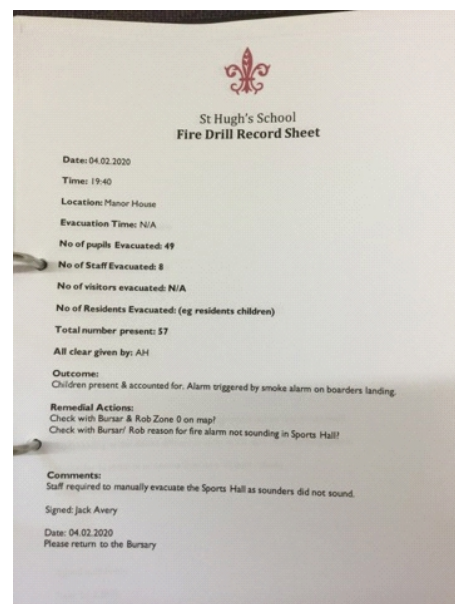 St Hugh's School
Fire Drill Record Sheet
Date: 04.02.2020
Time: 19:40
Location: Manor House
Evacuation Time: N/A
No of pupils Evacuated: 49
No of Staff Evacuated: 8
No of visitors evacuated: N/A
No of Residents Evacuated: (eg residents children)
Total number present: 57
All clear given by: AH
Outcome:
Children present & accounted for. Alarm triggered by smoke alarm on boarders landing.
Remedial Actions:
Check with Bursar & Rob Zone 0 on map?
Check with Bursar/ Rob reason for fire alarm not sounding in Sports Hall?
Comments:
Staff required to manually evacuate the Sports Hall as sounders did not sound.
Signed: Jack Avery
Date: 04.02.2020
Please return to the Bursary